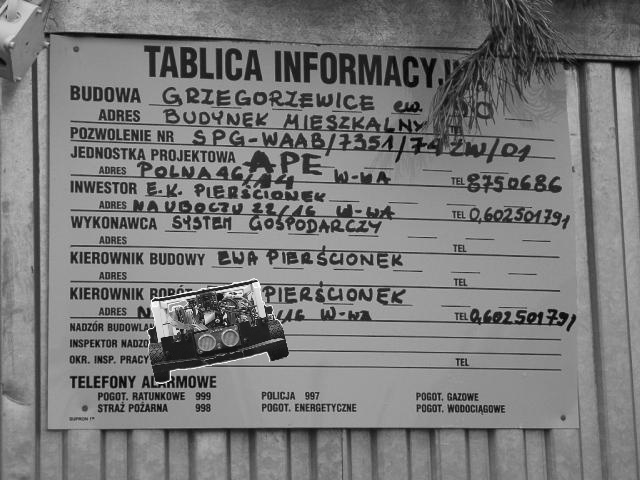 TABLICA INFORMACYJN
BUDOWA GRZEGORZEWICE ew. 
ADRES BUDYNEK MIESZKALNY
POZWOLENIE NR SPG-WAAB/7351/74 ZW/01
JEDNOSTKA PROJEKTOWA APE
ADRES POLNA 46/14 W-WA TEL 8750686
INWESTOR E.K. PIERŚCIONEK
ADRES NA UBOCZU 22/16 W-WA TEL 0,602501791
WYKONAWCA SYSTEM GOSPODARCZY
ADRES TEL
KIEROWNIK BUDOWY EWA PIERŚCIONEK
ADRES TEL
KIEROWNIK ROBÓT PIERŚCIONEK
ADRES N /16 W-WA TEL 0,602501791
NADZÓR BUDOWLA
INSPEKTOR NADZO
OKR. INSP. PRACY TEL
TELEFONY ALARMOWE
POGOT. RATUNKOWE 999 POLICJA 997 POGOT. GAZOWE
STRAŻ POŻARNA 998 POGOT. ENERGETYCZNE POGOT. WODOCIĄGOWE